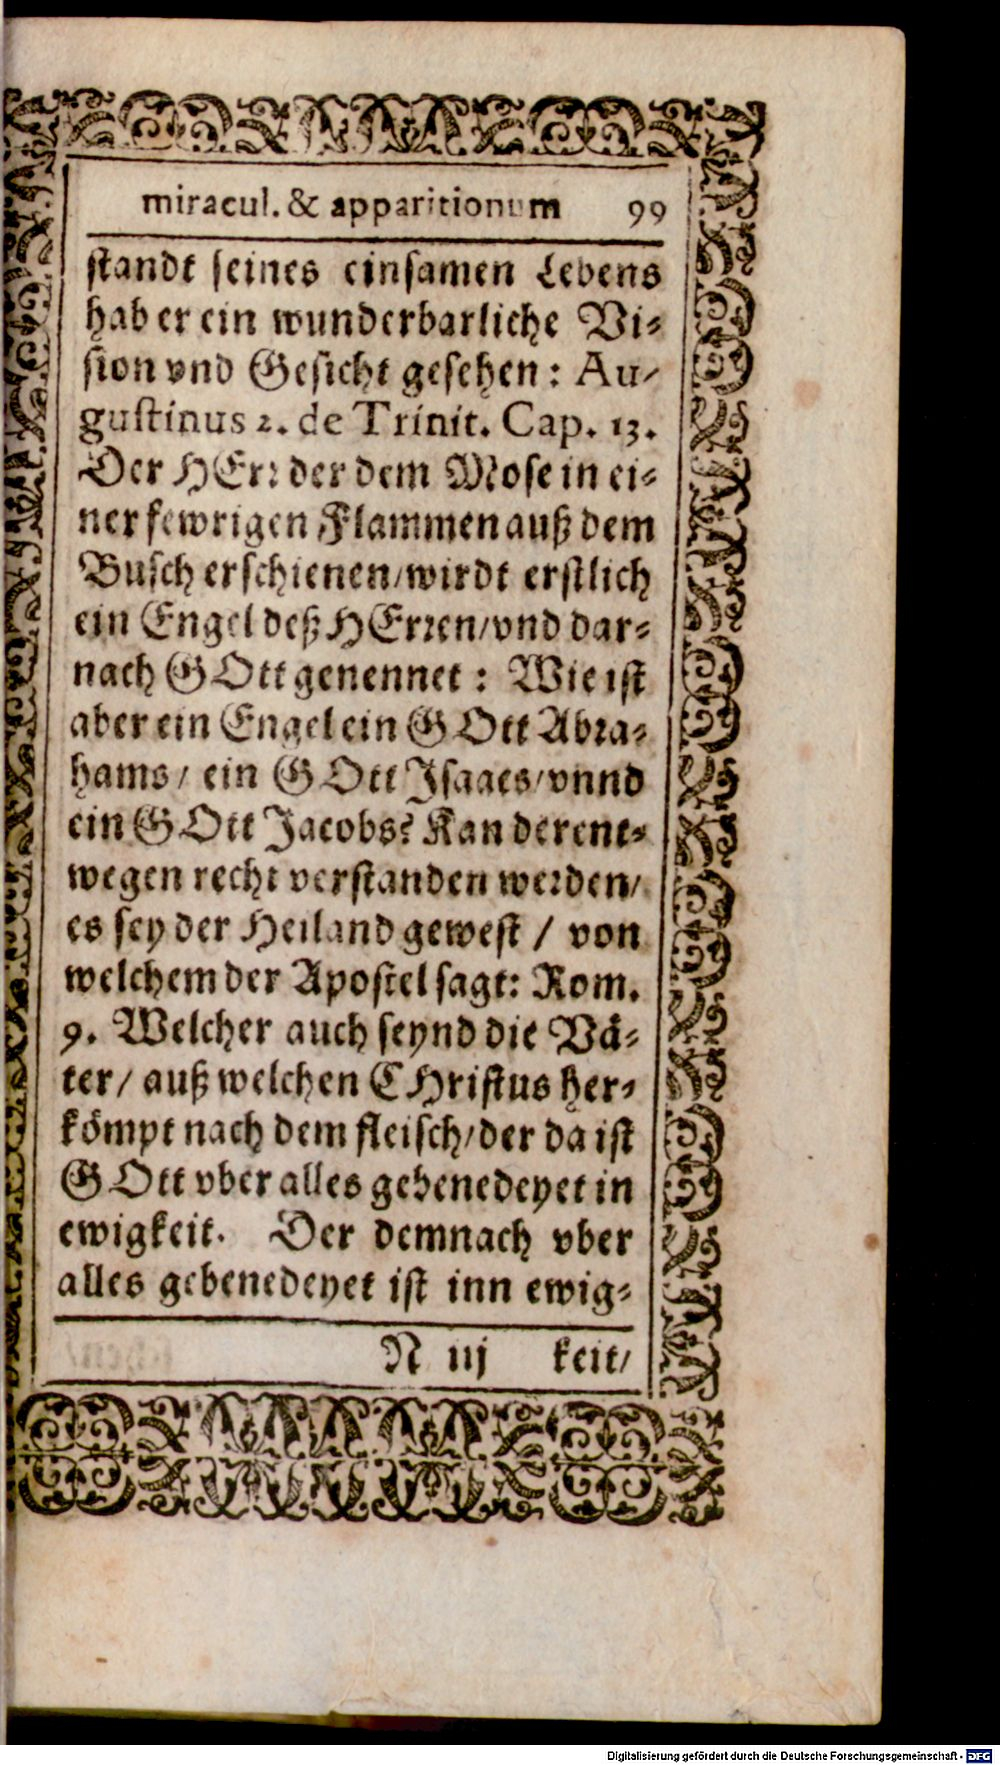 miracul. & apparitionum 99
standt seines einsamen Lebens
hab er ein wunderbarliche Vi-
sion vnd Gesicht gesehen: Au-
gustinus 2. de Trinit. Cap. 13.
Der HErr der dem Mose in ei-
ner fewrigen Flammen auß dem
Busch erschienen/wirdt erstlich
ein Engel deß HErren/vnd dar-
nach GOtt genennet: Wie ist
aber ein Engel ein GOtt Abra-
hams/ ein GOtt Isaacs/vnnd
ein GOtt Jacobs? Kan derent-
wegen recht verstanden werden/
es sey der Heiland gewest / von
welchem der Apostel sagt: Rom.
9. Welcher auch seynd die Vä-
ter/ auß welchen CHristus her-
kömpt nach dem fleisch/der da ist
GOtt vber alles gebenedeyet in
ewigkeit. Der demnach vber
alles gebenedeyet ist inn ewig-
N iij keit/
Digitalisierung gefördert durch die Deutsche Forschungsgemeinschaft - DFG